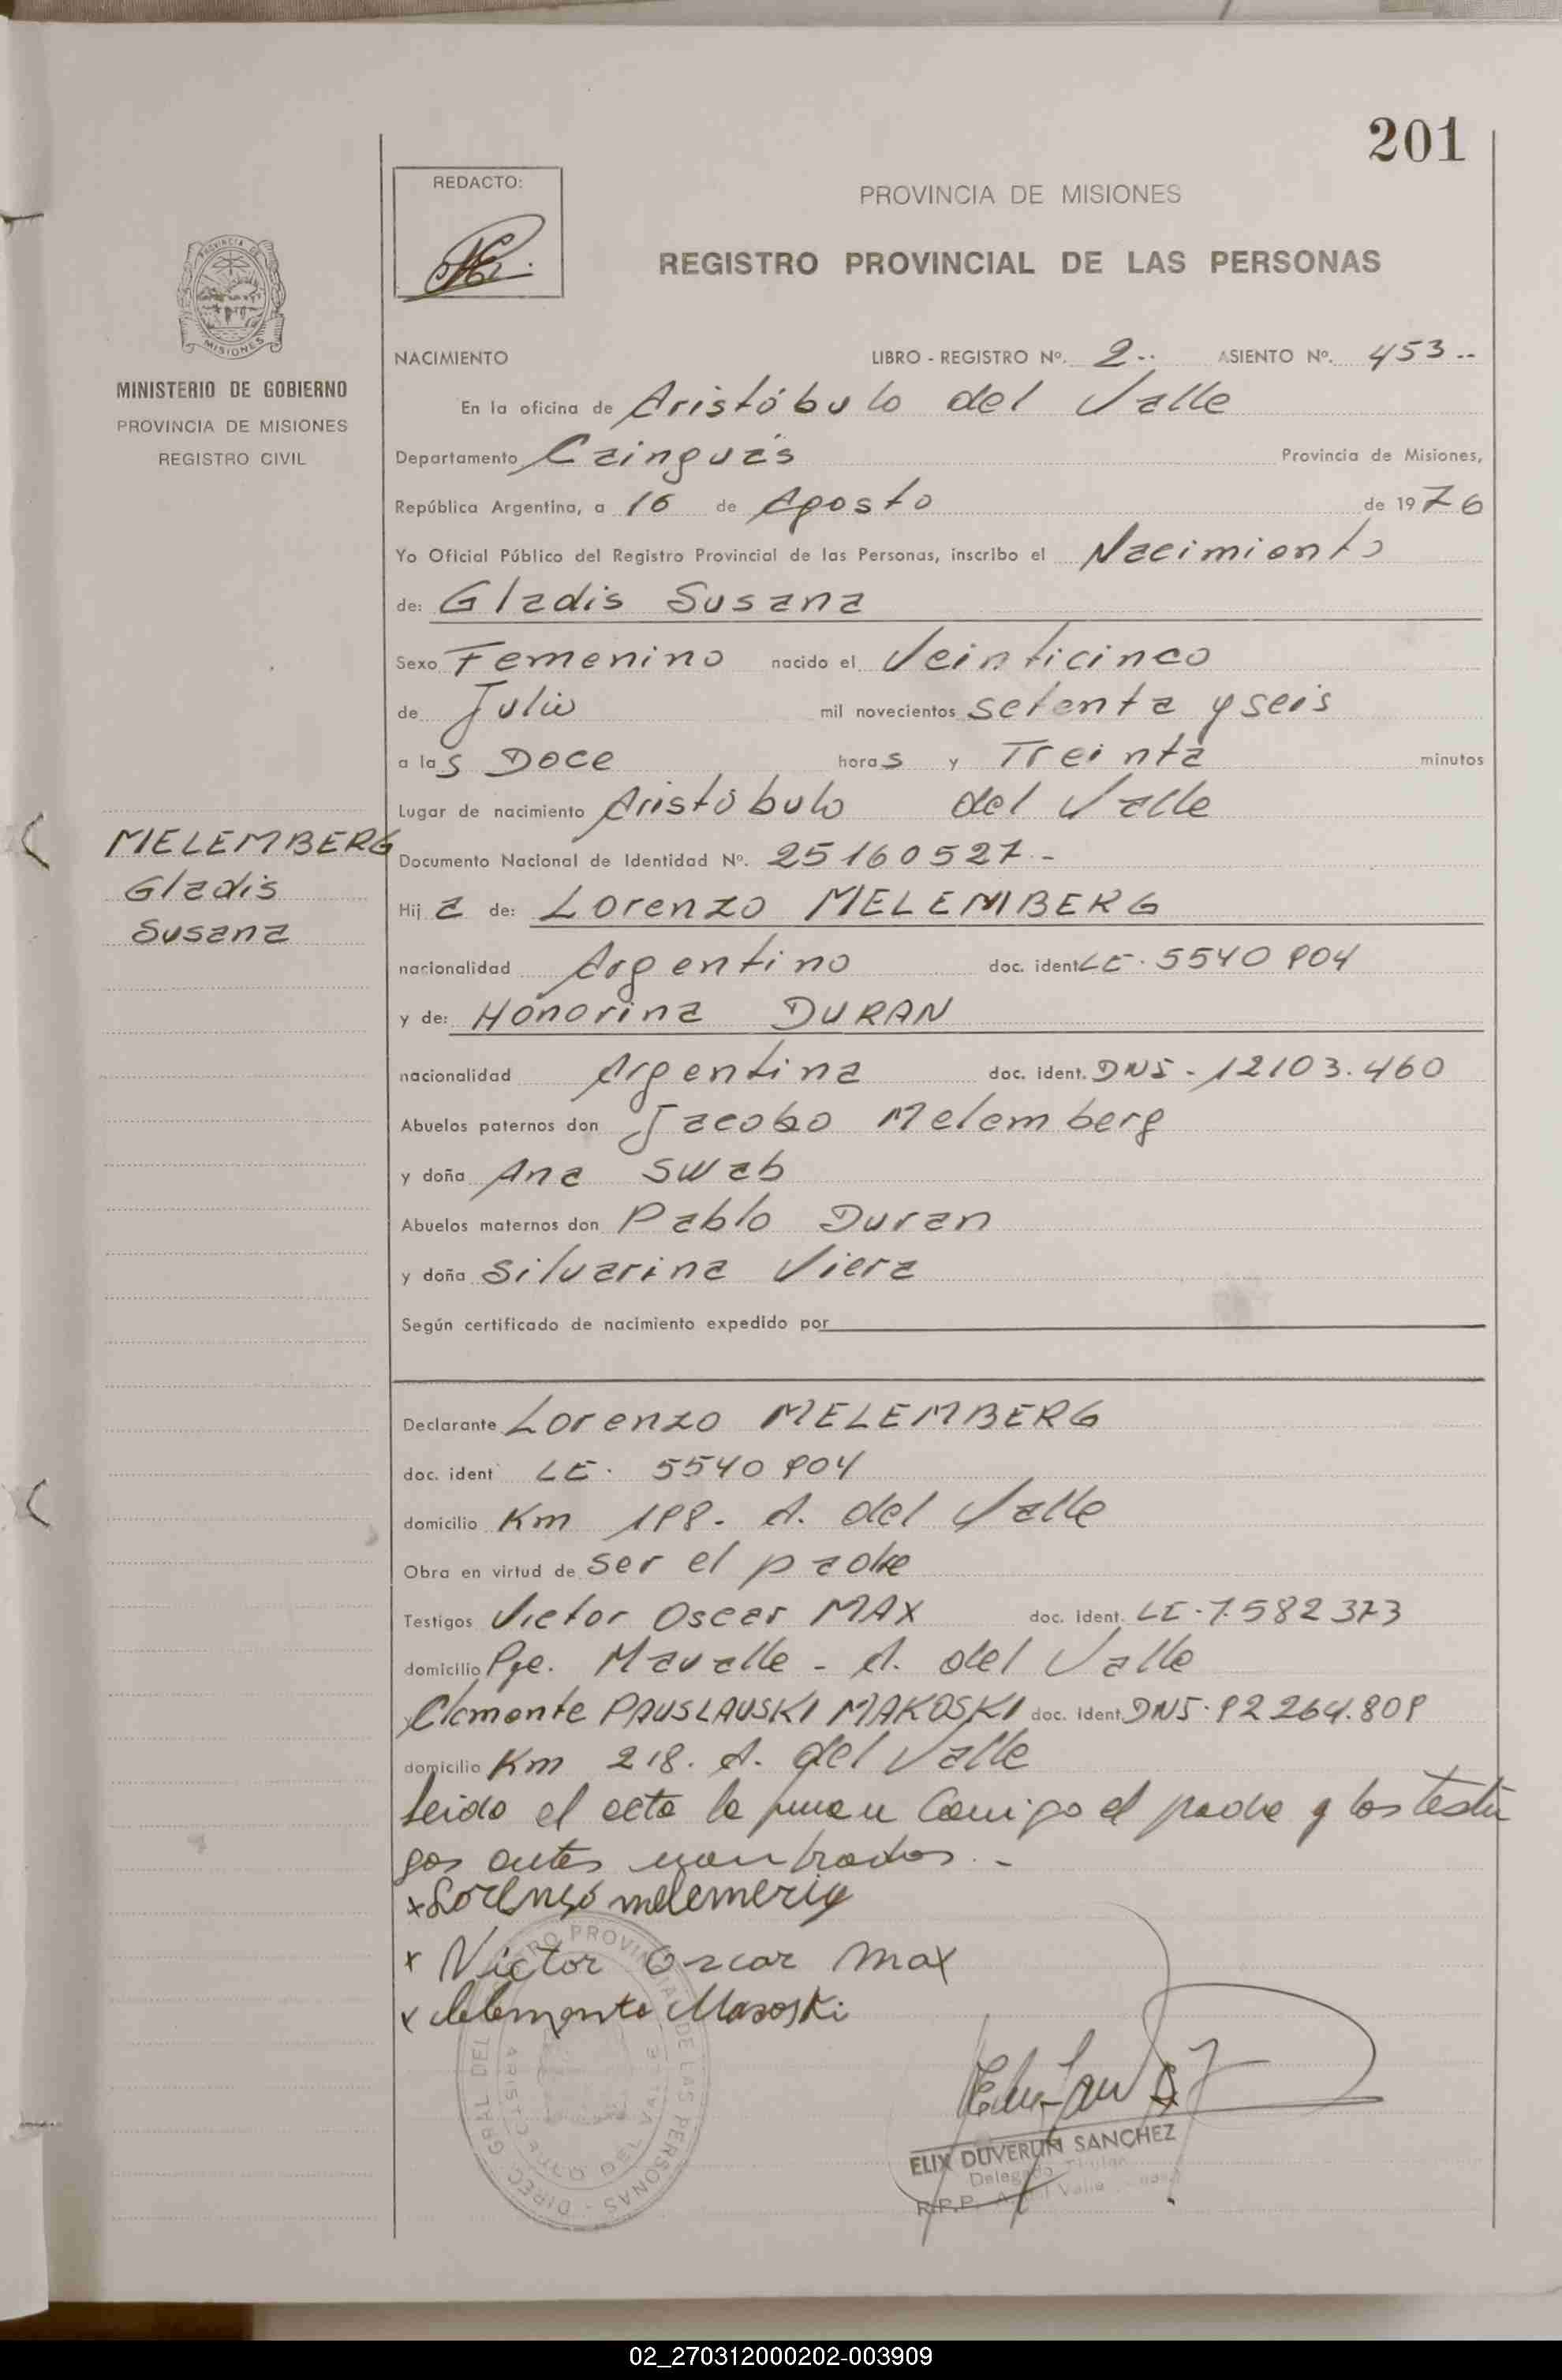 201
REDACTO:
PROVINCIA DE MISIONES
REGISTRO PROVINCIAL DE LAS PERSONAS
PROVINCIA DE
MISIONES
MINISTERIO DE GOBIERNO
PROVINCIA DE MISIONES
REGISTRO CIVIL
MELEMBERG
Gladis
Susana
NACIMIENTO LIBRO - REGISTRO Nº. 2.. ASIENTO Nº. 453..
En la oficina de Aristóbulo del Valle
Departamento Cainguás Provincia de Misiones,
República Argentina, a 16 de Agosto de 1976
Yo Oficial Público del Registro Provincial de las Personas, inscribo el Nacimiento
de: Gladis Susana
Sexo Femenino nacido el Veinticinco
de Julio mil novecientos setenta y seis
a las Doce horas y Treinta minutos
Lugar de nacimiento Aristóbulo del Valle
Documento Nacional de Identidad Nº. 25160527.-
Hija de: Lorenzo MELEMBERG
nacionalidad Argentino doc. ident LE. 5540904
y de: Honorina DURAN
nacionalidad Argentina doc. ident. DNI - 12103.460
Abuelos paternos don Jacobo Melemberg
y doña Ana Swab
Abuelos maternos don Pablo Duran
y doña Silvarina Viera
Según certificado de nacimiento expedido por
Declarante Lorenzo MELEMBERG
doc. ident LE. 5540904
domicilio Km 198. A. del Valle
Obra en virtud de ser el padre
Testigos Victor Oscar MAX doc. Ident. LE-7.582373
domicilio Pje. Mavalle - A. del Valle
y Clemente PAUSLAUSKI MAKOSKI doc. Ident. DNI. 92264.809
domicilio Km 218. A. del Valle
Leido el acta la firman conmigo el padre y los testi
gos antes nombrados.-
x Lorenzo melemerig
x Victor Oscar Max
x Clemente Masoski
DIREC. GRAL DEL REGISTRO PROVINCIAL DE LAS PERSONAS -
ARISTOBULO DEL VALLE
ELIX DUVERLIN SANCHEZ
Delegado Titular
R.P.P. A. del Valle
02_270312000202-003909